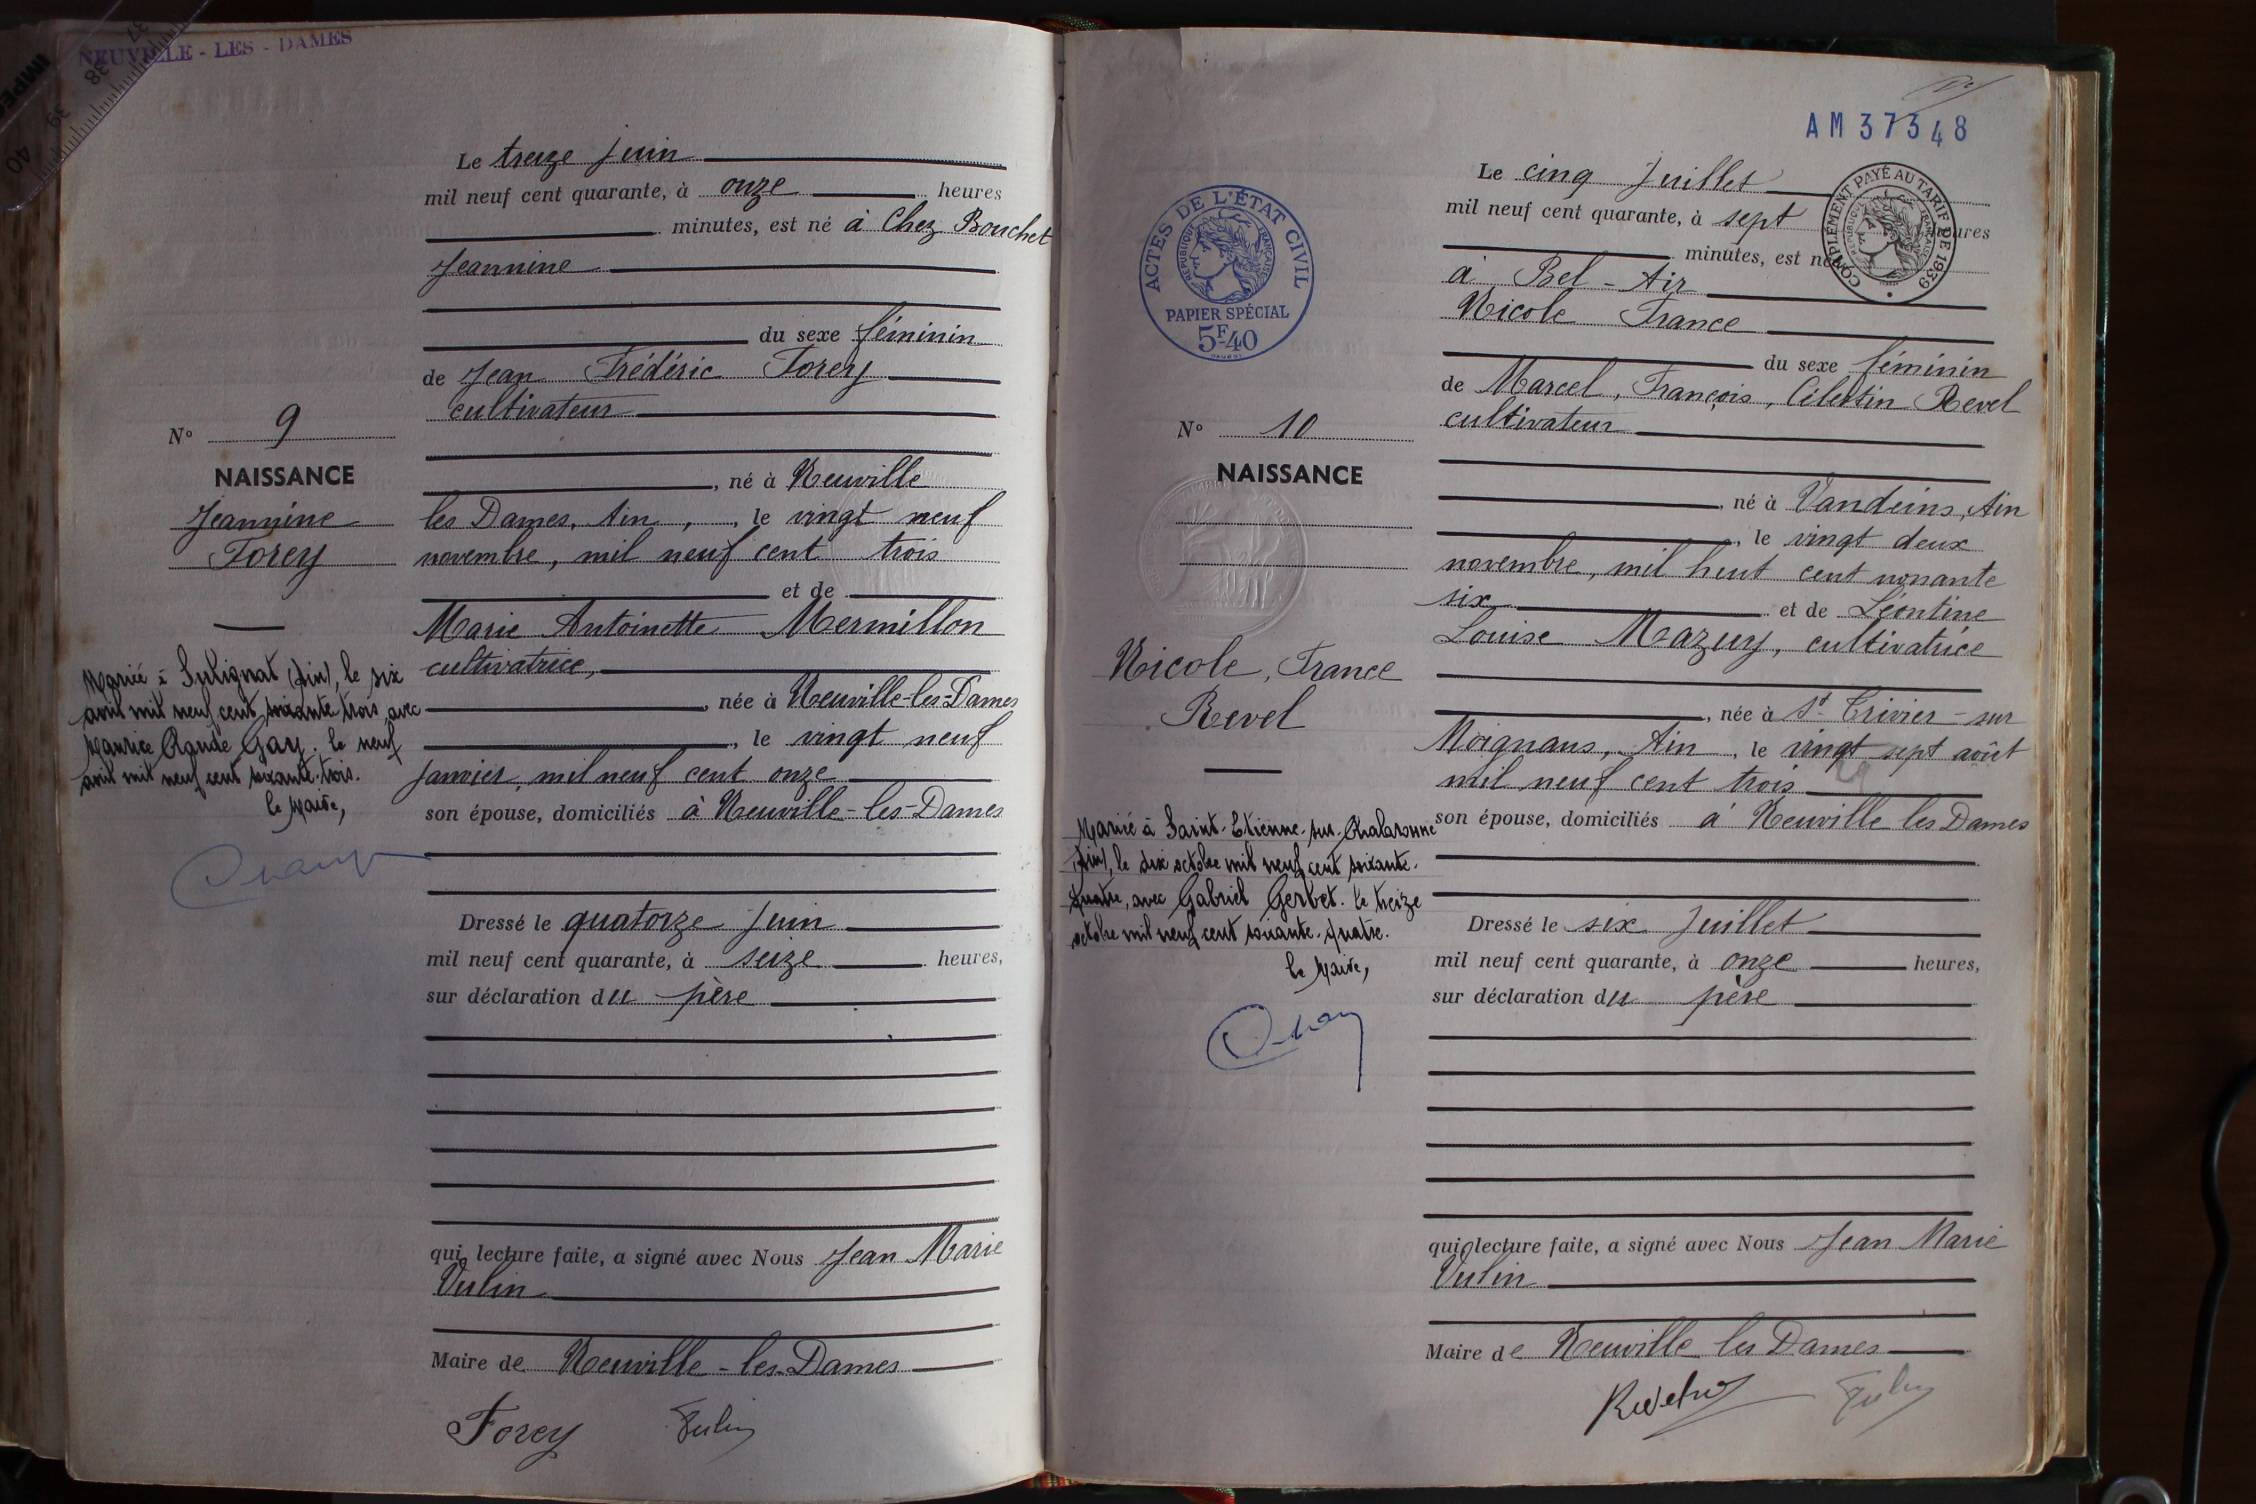 NEUVILLE - LES - DAMES
37
38
39
40
Le treize Juin
mil neuf cent quarante, à onze heures
minutes, est né à Chez Bouchet
Jeannine
du sexe féminin
de Jean Frédéric Forey
cultivateur
, né à Neuville
les Dames, Ain, , le vingt neuf
novembre, mil neuf cent trois
et de
Marie Antoinette Mermillon
cultivatrice,
, née à Neuville-les-Dames
, le vingt neuf
janvier, mil neuf cent onze
son épouse, domiciliés à Neuville-les-Dames
Dressé le quatorze Juin
mil neuf cent quarante, à seize heures,
sur déclaration du père
qui, lecture faite, a signé avec Nous Jean Marie
Vulin
Maire de Neuville-les-Dames
Forey
Vulin
No 9
NAISSANCE
Jeannine
Forey
Marié à Sulignat (Ain), le six
avril mil neuf cent soixante trois, avec
Maurice Claude Gay. le neuf
avril mil neuf cent soixante-trois.
le Maire,
AM 37348
Le cinq Juillet
mil neuf cent quarante, à sept heures
minutes, est né
à Bel-Air
Nicole France
du sexe féminin
de Marcel, François, Célestin Revel
cultivateur
, né à Vandeins, Ain
, le vingt deux
novembre, mil huit cent nonante
six et de Léontine
Louise Mazuy, cultivatrice
, née à St Trivier-sur
Moignans, Ain , le vingt sept août
mil neuf cent trois
son épouse, domiciliés à Neuville les Dames
Dressé le six Juillet
mil neuf cent quarante, à onze heures,
sur déclaration du père
qui, lecture faite, a signé avec Nous Jean Marie
Vulin
Maire de Neuville les Dames
Vulin
ACTES DE L'ÉTAT CIVIL
RÉPUBLIQUE FRANÇAISE
PAPIER SPÉCIAL
5F40
COMPLÉMENT PAYÉ AU TARIF DE 1939
RÉPUBLIQUE FRANÇAISE
No 10
NAISSANCE
Nicole, France
Revel
Marié à Saint-Etienne-sur-Chalaronne
(Ain), le dix octobre mil neuf cent soixante-
quatre, avec Gabriel Gerbet. le treize
octobre mil neuf cent soixante-quatre.
le Maire,